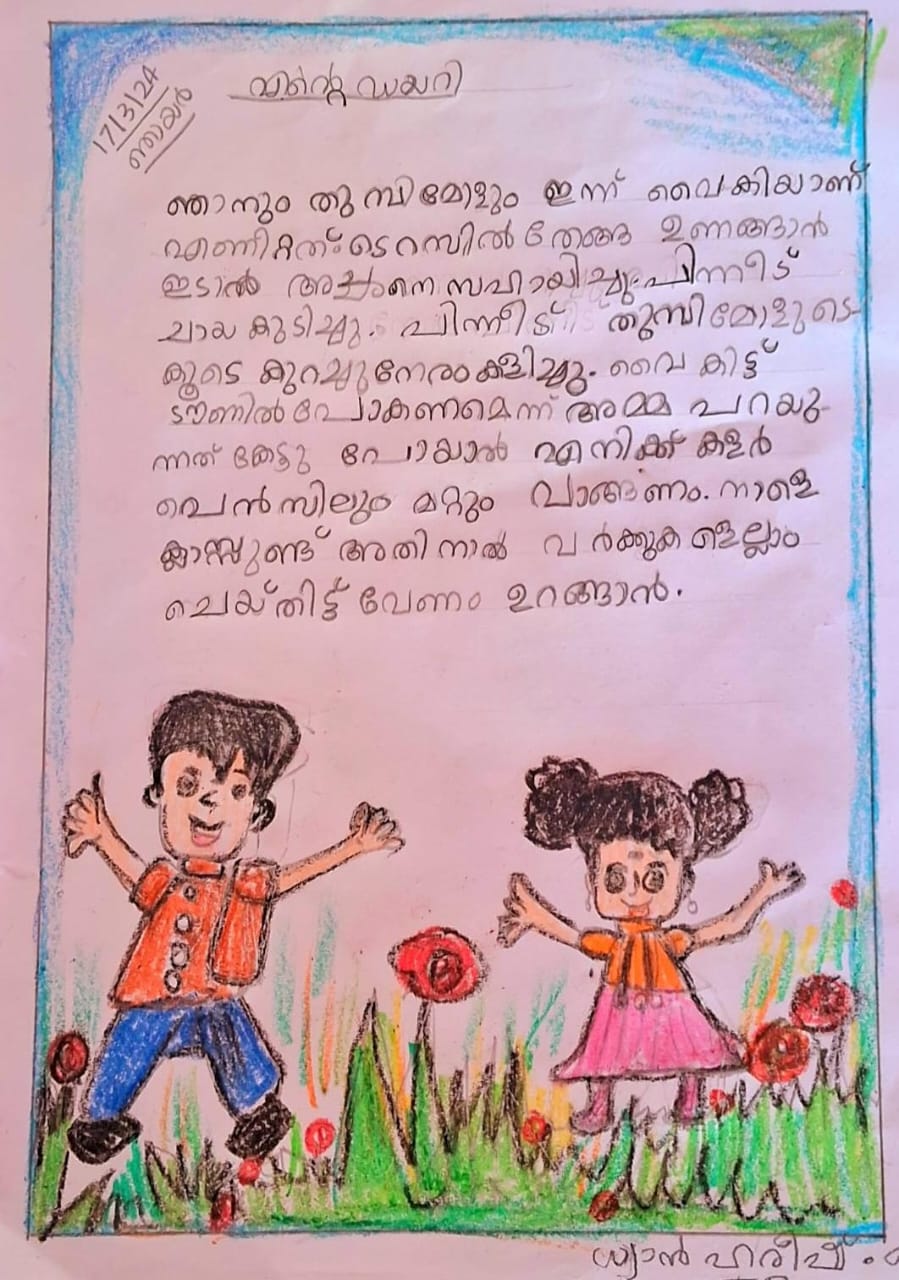 എന്റെ ഡയറി
17/3/24
ഞായർ
ഞാനും തുമ്പിമോളും ഇന്ന് വൈകിയാണ്
എണീറ്റത്. ടെറസിൽ തേങ്ങ ഉണങ്ങാൻ
ഇടാൻ അച്ഛനെ സഹായിച്ചു. പിന്നീട്
ചായ കുടിച്ചു. പിന്നീട് തുമ്പിമോളുടെ
കൂടെ കുറച്ചുനേരം കളിച്ചു. വൈകിട്ട്
ടൗണിൽ പോകണമെന്ന് അമ്മ പറയു-
ന്നത് കേട്ടു പോയാൽ എനിക്ക് കളർ
പെൻസിലും മറ്റും വാങ്ങണം. നാളെ
ക്ലാസ്സുണ്ട് അതിനാൽ വർക്കുകളെല്ലാം
ചെയ്തിട്ട് വേണം ഉറങ്ങാൻ.
ധ്യാൻ ഹരീഷ്.